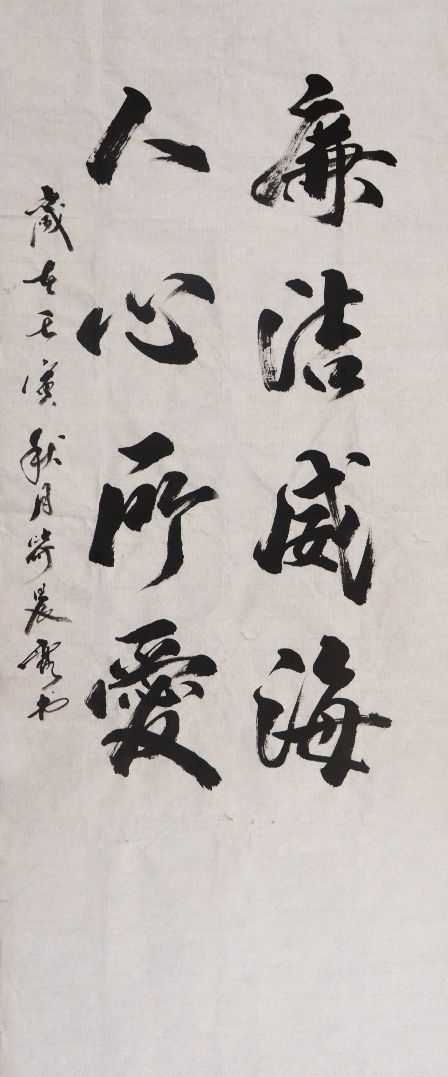 廉洁威海
人心所愛
歲在壬寅秋月晨露书